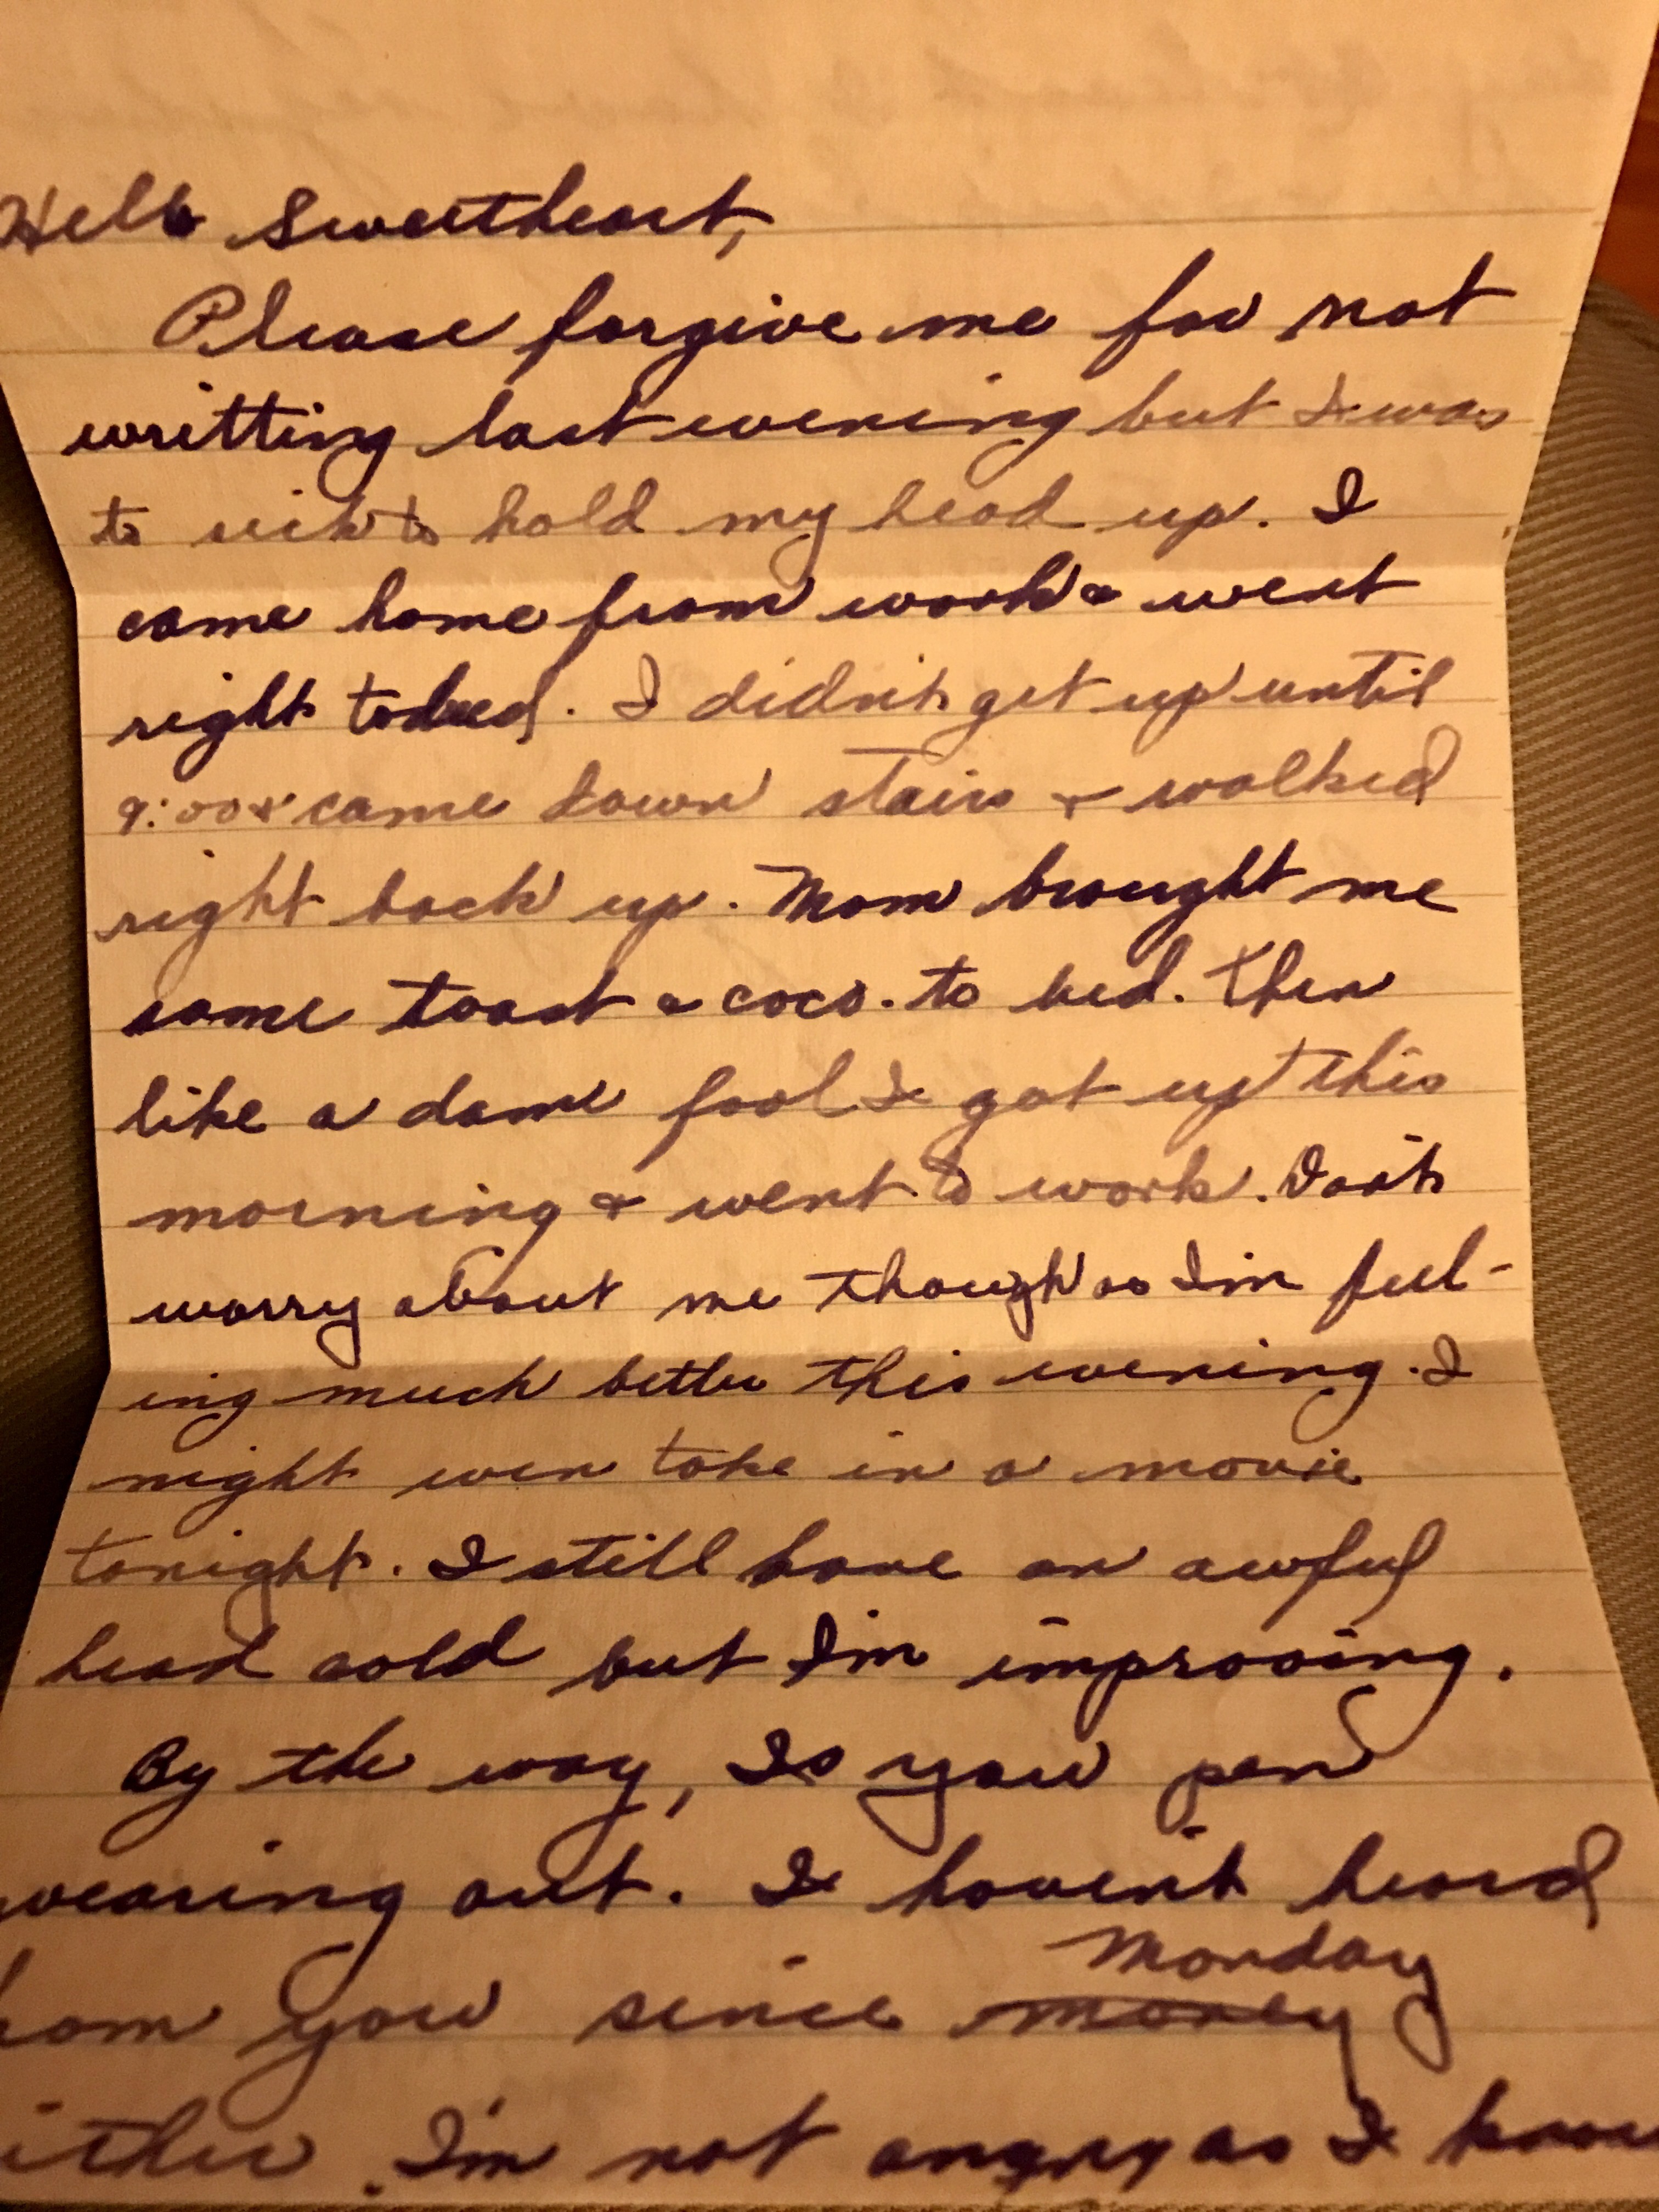 Hello Sweetheart,
Please forgive me for not
writting last evening but I was
to sick to hold my head up. I
came home from work & went
right to bed. I didn't get up until
9:00 & came down stairs & walked
right back up. Mom brought me
some toast & coco. to bed. Then
like a dame fool I got up this
morning & went to work. Don't
worry about me though as I'm feel-
ing much better this evening. I
might even take in a movie
tonight. I still have an awful
head cold but I'm improving.
By the way, Is your pen
wearing out. I haven't heard
from you since money Monday
either. I'm not angry as I know